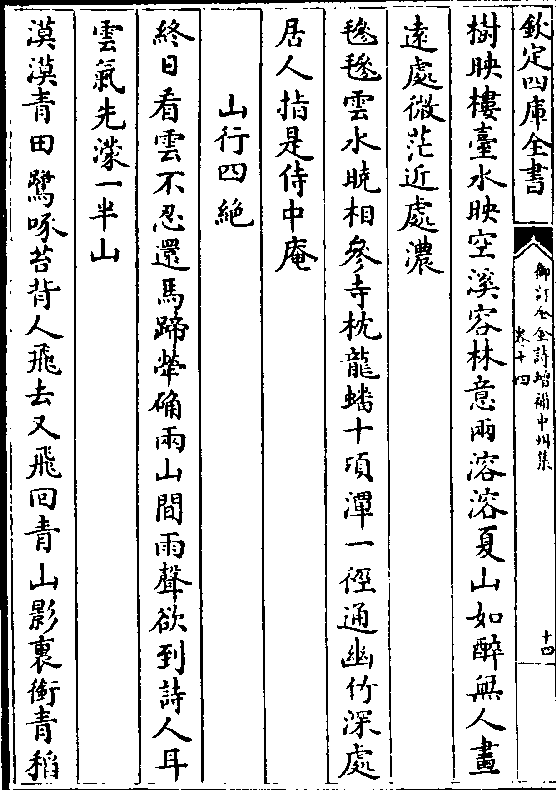 欽定四庫全書
御訂全金詩增補中州集
卷十四
十四
樹映樓臺水映空溪容林意兩溶溶夏山如醉無人畫
遠處微茫近處濃
毿毿雲水曉相參寺枕龍蟠十頃潭一徑通幽竹深處
居人指是侍中庵
山行四絶
終日看雲不忍還馬蹄犖确兩山間雨聲欲到詩人耳
雲氣先濛一半山
漠漠青田鷺啄苔背人飛去又飛回青山影裏衝青稻